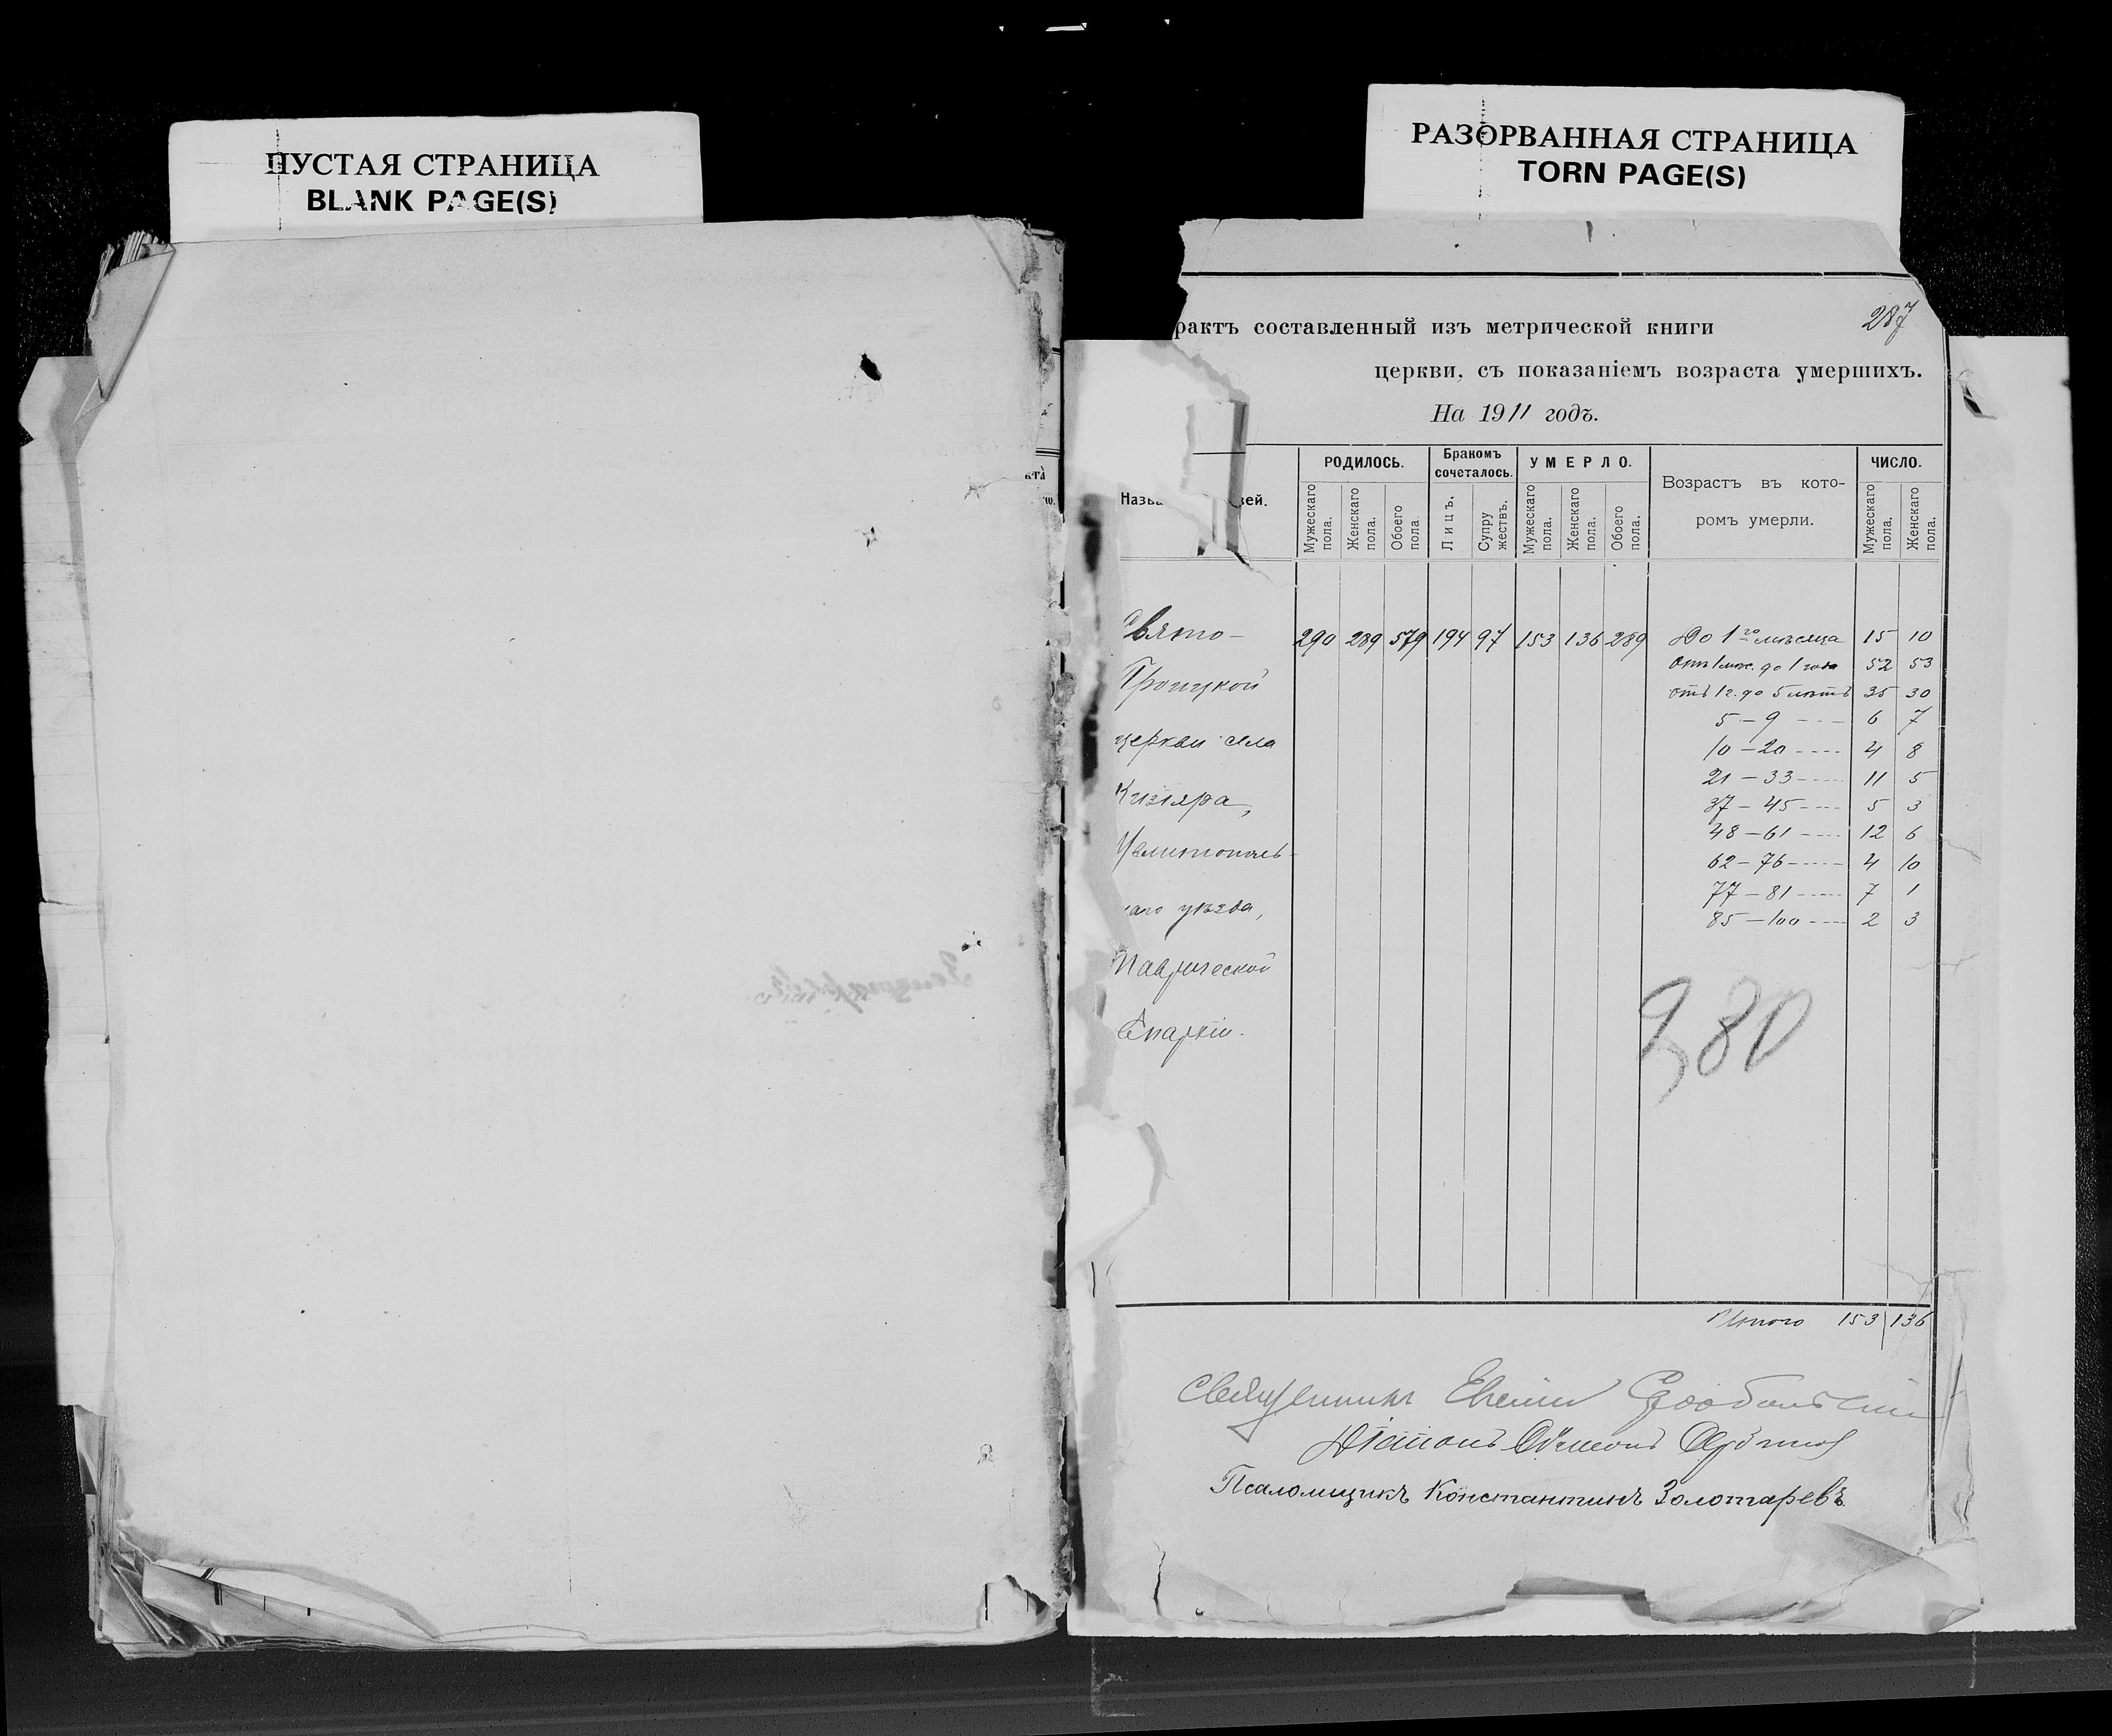 ПУСТАЯ СТРАНИЦА
BLANK PAGE(S)
РАЗОРВАННАЯ СТРАНИЦА
TORN PAGE(S)
287
рактъ составленный изъ метрической книги
церкви, съ показаніемъ возраста умершихъ.
На 1911 годъ.
РОДИЛОСЬ. Бракомъ сочеталось. УМЕРЛО. Возрастъ въ кото-ромъ умерли. ЧИСЛО.
Мужескаго пола. Женскаго пола. Обоего пола. Лицъ. Супружествъ. Мужескаго пола. Женскаго пола. Обоего пола. Мужескаго пола. Женскаго пола.
Свято- 290 289 579 194 97 153 136 289 До 1го мѣсяца 15 10
отъ 1 мѣс. до 1 года 52 53
Троицкой отъ 1 г. до 5 лѣтъ 35 30
5 – 9 6 7
церкви села 10 – 20 4 8
21 – 33 11 5
Кизіяра, 37 – 45 5 3
48 – 61 12 6
Мелитополь- 62 – 76 4 10
77 – 81 7 1
каго уѣзда, 85 – 100 2 3
Таврической
Епархіи.
980
Итого 153 136
Священникъ Евгеній
Діаконъ Симеонъ
Псаломщикъ Константинъ Золотаревъ